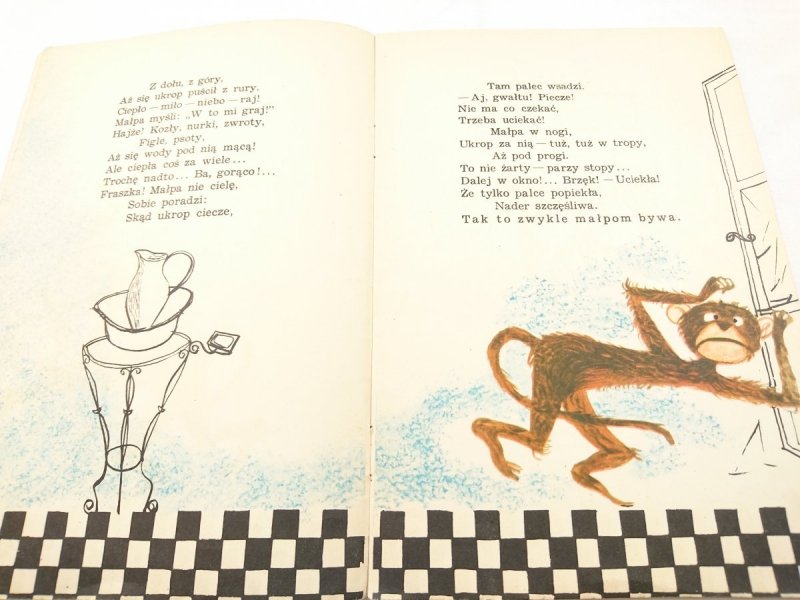 Z dołu, z góry,
Aż się ukrop puścił z rury.
Ciepło — miło — niebo — raj!
Małpa myśli: „W to mi graj!"
Hajże! Kozły, nurki, zwroty,
Figle, psoty,
Aż się wody pod nią mącą!
Ale ciepła coś za wiele...
Trochę nadto... Ba, gorąco!...
Fraszka! Małpa nie cielę,
Sobie poradzi:
Skąd ukrop ciecze,
Tam palec wsadzi.
— Aj, gwałtu! Piecze!
Nie ma co czekać,
Trzeba uciekać!
Małpa w nogi,
Ukrop za nią — tuż, tuż w tropy,
Aż pod progi.
To nie żarty — parzy stopy...
Dalej w okno!... Brzęk! — Uciekła!
Że tylko palce popiekła,
Nader szczęśliwa.
Tak to zwykle małpom bywa.